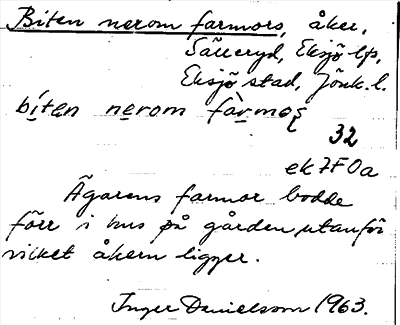 Biten nerom farmors, åker,
Sälleryd, Eksjö lfs,
Eksjö stad, Jönk. l.
bíten nerom fàrmoʂ
32
ek 7F0a
Ägarens farmor bodde
förr i hus på gården utanför
vilket åkern ligger.
Inger Danielsson 1963.